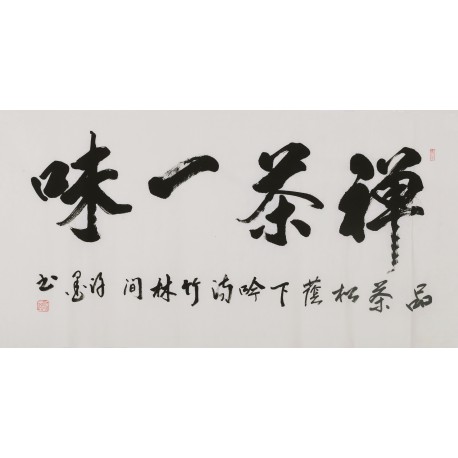 禅茶一味
品茶松蔭下吟诗竹林间墨书